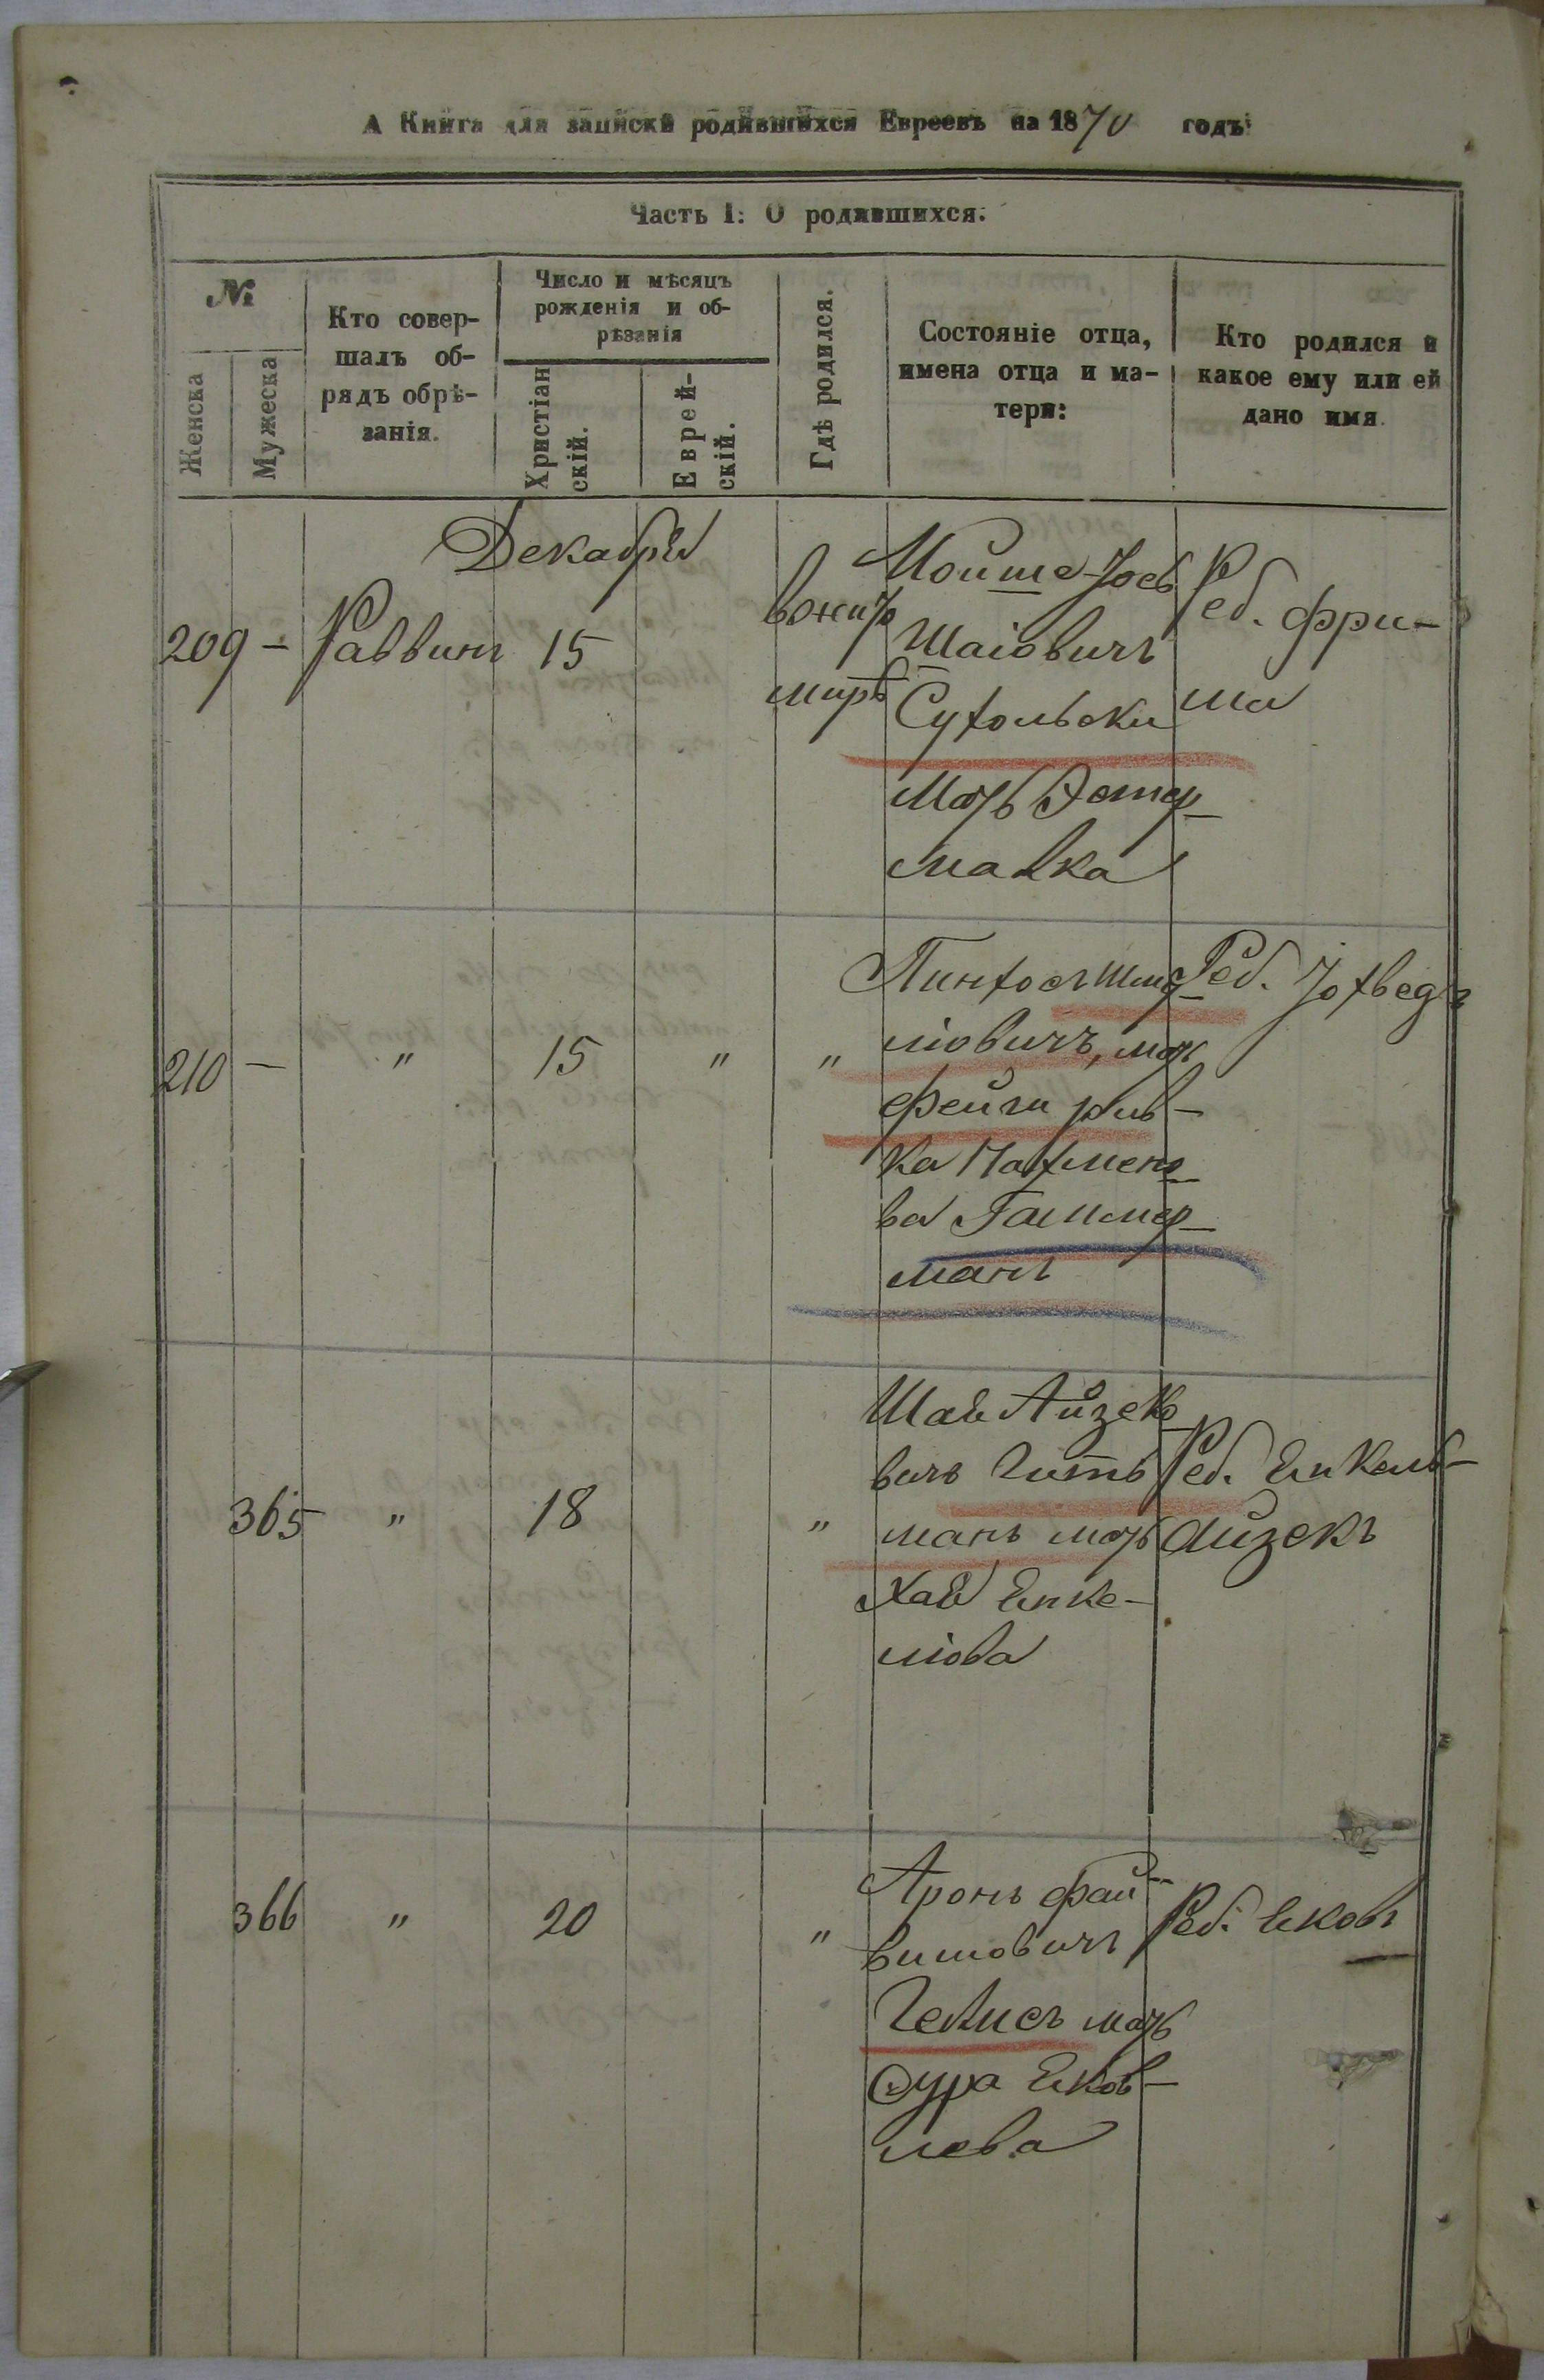 А Книга для записки родившихся Евреевъ на 1870 годъ
Часть I: О родившихся.
№
Женска
Мужеска
Кто совер-
шалъ об-
рядъ обрѣ-
занія.
Число и мѣсяцъ
рожденія и об-
рѣзанія
Христіан
скій.
Еврей-
скій.
Гдѣ родился.
Состояніе отца,
имена отца и ма-
тери:
Кто родился и
какое ему или ей
дано имя.
Декабря
209 — Раввинъ 15
вжито
мирѣ
Мойше-Іось
Шаіовичъ
Сухольски
Мать Эстер-
малка
Реб. Фри-
ма
210 — " 15 " "
Пинхосъ Шму-
ліовичъ, мать
Фейга Рив-
ка Нахмено-
ва Гаммер-
манъ
Реб. Іохведъ
365 " 18 "
Шая Айзеко
вичъ Гитъ
манъ мать
Хая Янке-
ліова
Реб. Янкель-
Айзекъ
366 " 20 "
Аронъ Фай-
вишовичъ
мать
Сура Яков-
лева
Реб. Яковъ